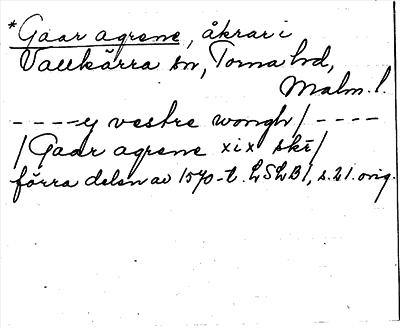 *Gaar agrene, åkrar i
Vallkärra sn, Torna hd,
Malm. l.
----y vestre wongh/----
/Gaar agrene xix skr/
förra delen av 1570-t. LSLB1, s.21. orig.